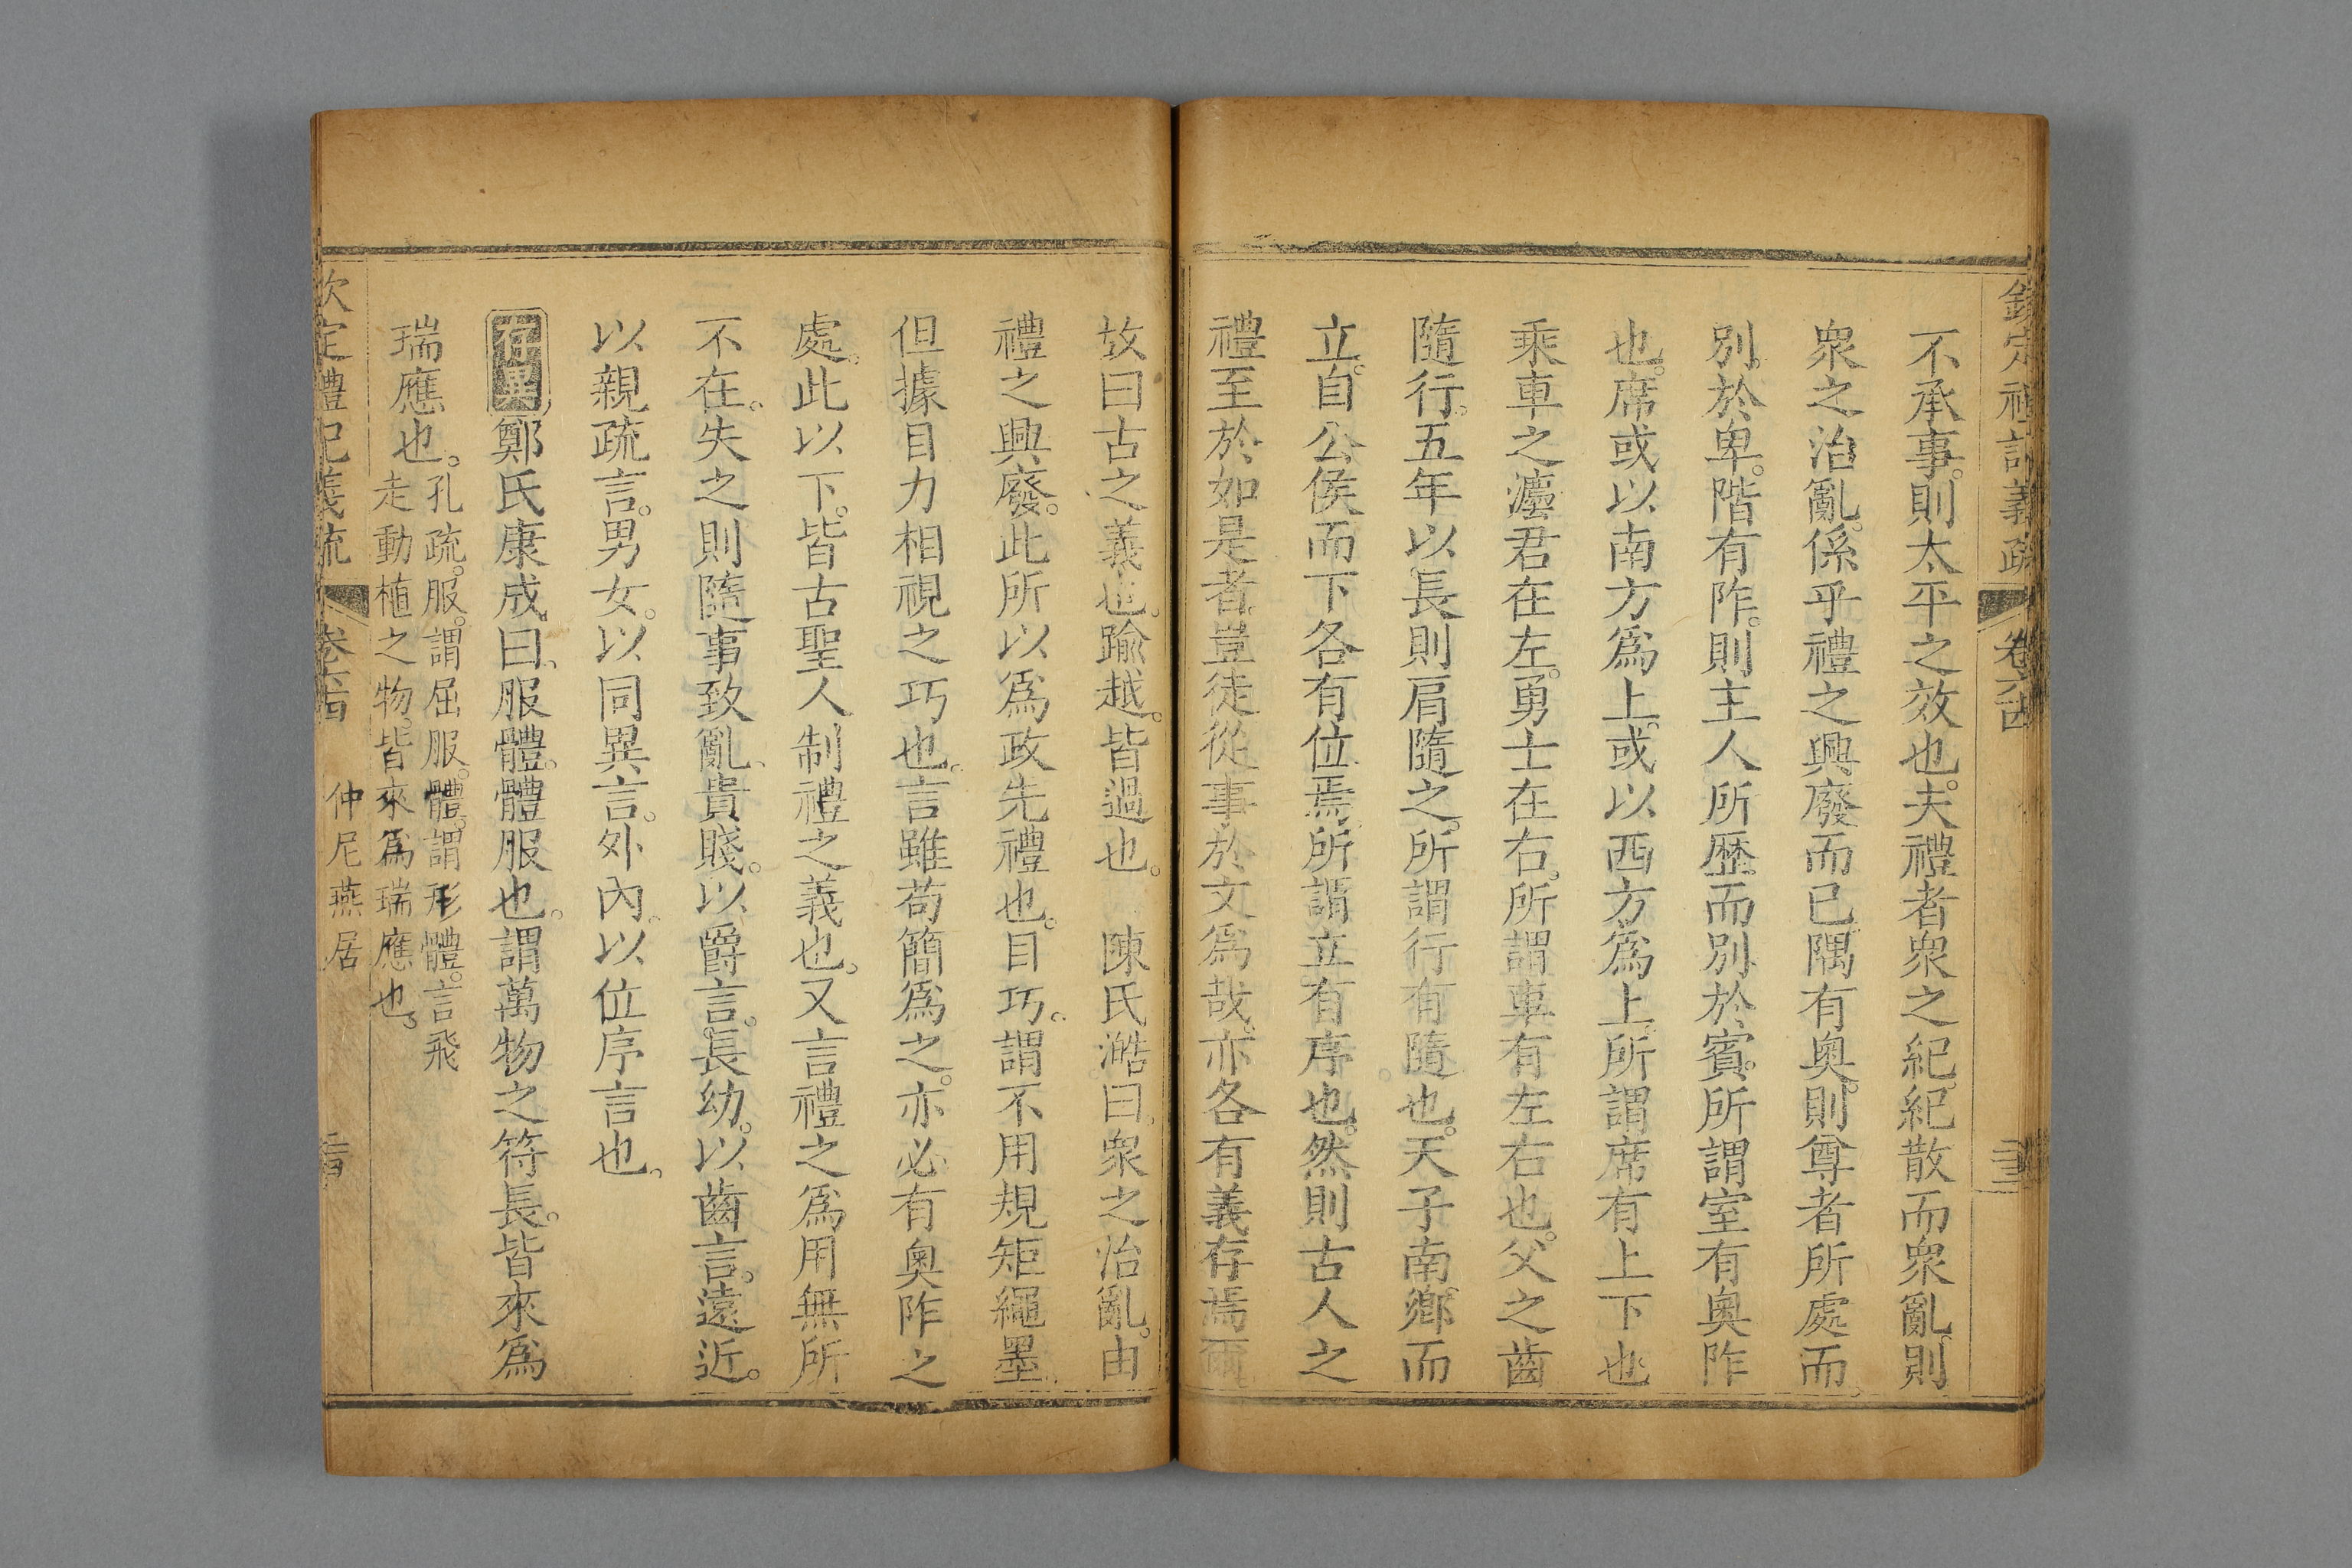 欽定禮記義疏 卷六十四
不承事。則太平之效也。夫禮者衆之紀。紀散而衆亂。則
衆之治亂。係乎禮之興廢而已。隅有奥。則尊者所處。而
別。於卑。階有阼。則主人所歷。而別於賓。所謂室有奥阼
也。席或以南方爲上。或以西方爲上。所謂席有上下也
乘車之灋。君在左。勇士在右。所謂車有左右也。父之齒
隨行。五年以長則肩隨之。所謂行有隨也。天子南鄉而
立。自公侯而下各有位焉。所謂立有序也。然則古人之
禮至於如是者。豈徒從事於文爲哉。亦各有義存焉爾。
故曰古之義也。踰越。皆過也。 陳氏澔曰。衆之治亂。由
禮之興廢。此所以爲政先禮也。目巧。謂不用規矩繩墨。
但據目力相視之巧也。言雖苟簡爲之。亦必有奥阼之
處。此以下。皆古聖人制禮之義也。又言禮之爲用無所
不在。失之則隨事致亂。貴賤。以爵言。長幼。以齒言。遠近。
以親疏言。男女。以同異言。外內。以位序言也。
存異 鄭氏康成曰。服體。體服也。謂萬物之符長。皆來爲
瑞應也。孔疏。服。謂屈服。體。謂形體。言飛
走動植之物。皆來爲瑞應也。
欽定禮記義疏 卷六十四 仲尼燕居